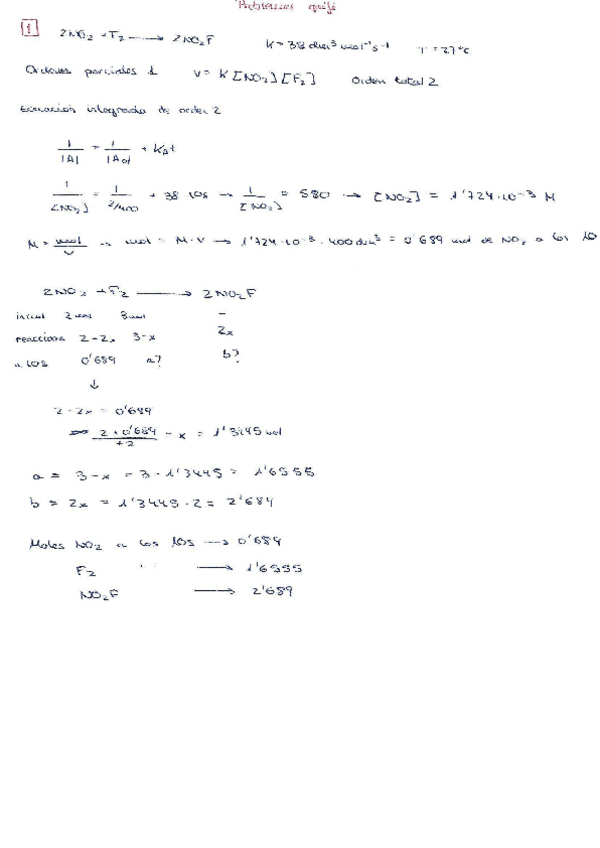 Problemas quifi
1 2NO₂ + F₂ ⟶ 2NO₂F K = 38 dm³ mol⁻¹ s⁻¹ T = 27ºC
Ordenes parciales 1 v = K [NO₂] [F₂] Orden total 2
Ecuación integrada de orden 2
1/|A| = 1/|A₀| + K_A t
1/[NO₂] = 1/(2/400) + 38·10s → 1/[NO₂] = 580 → [NO₂] = 1'724·10⁻³ M
M = mol/V → mol = M·V → 1'724·10⁻³·400dm³ = 0'689 mol de NO₂ a los 10
2NO₂ + F₂ ⟶ 2NO₂F
inicial 2mol 3mol –
reacciona 2-2x 3-x 2x
a 10s 0'689 a? b?
↓
2-2x = 0'689
2+0'689/+2 - x = 1'3445 mol
a = 3-x = 3-1'3445 = 1'6555
b = 2x = 1'3445·2 = 2'689
Moles NO₂ a los 10s ⟶ 0'689
F₂ '' ⟶ 1'6555
NO₂F ⟶ 2'689